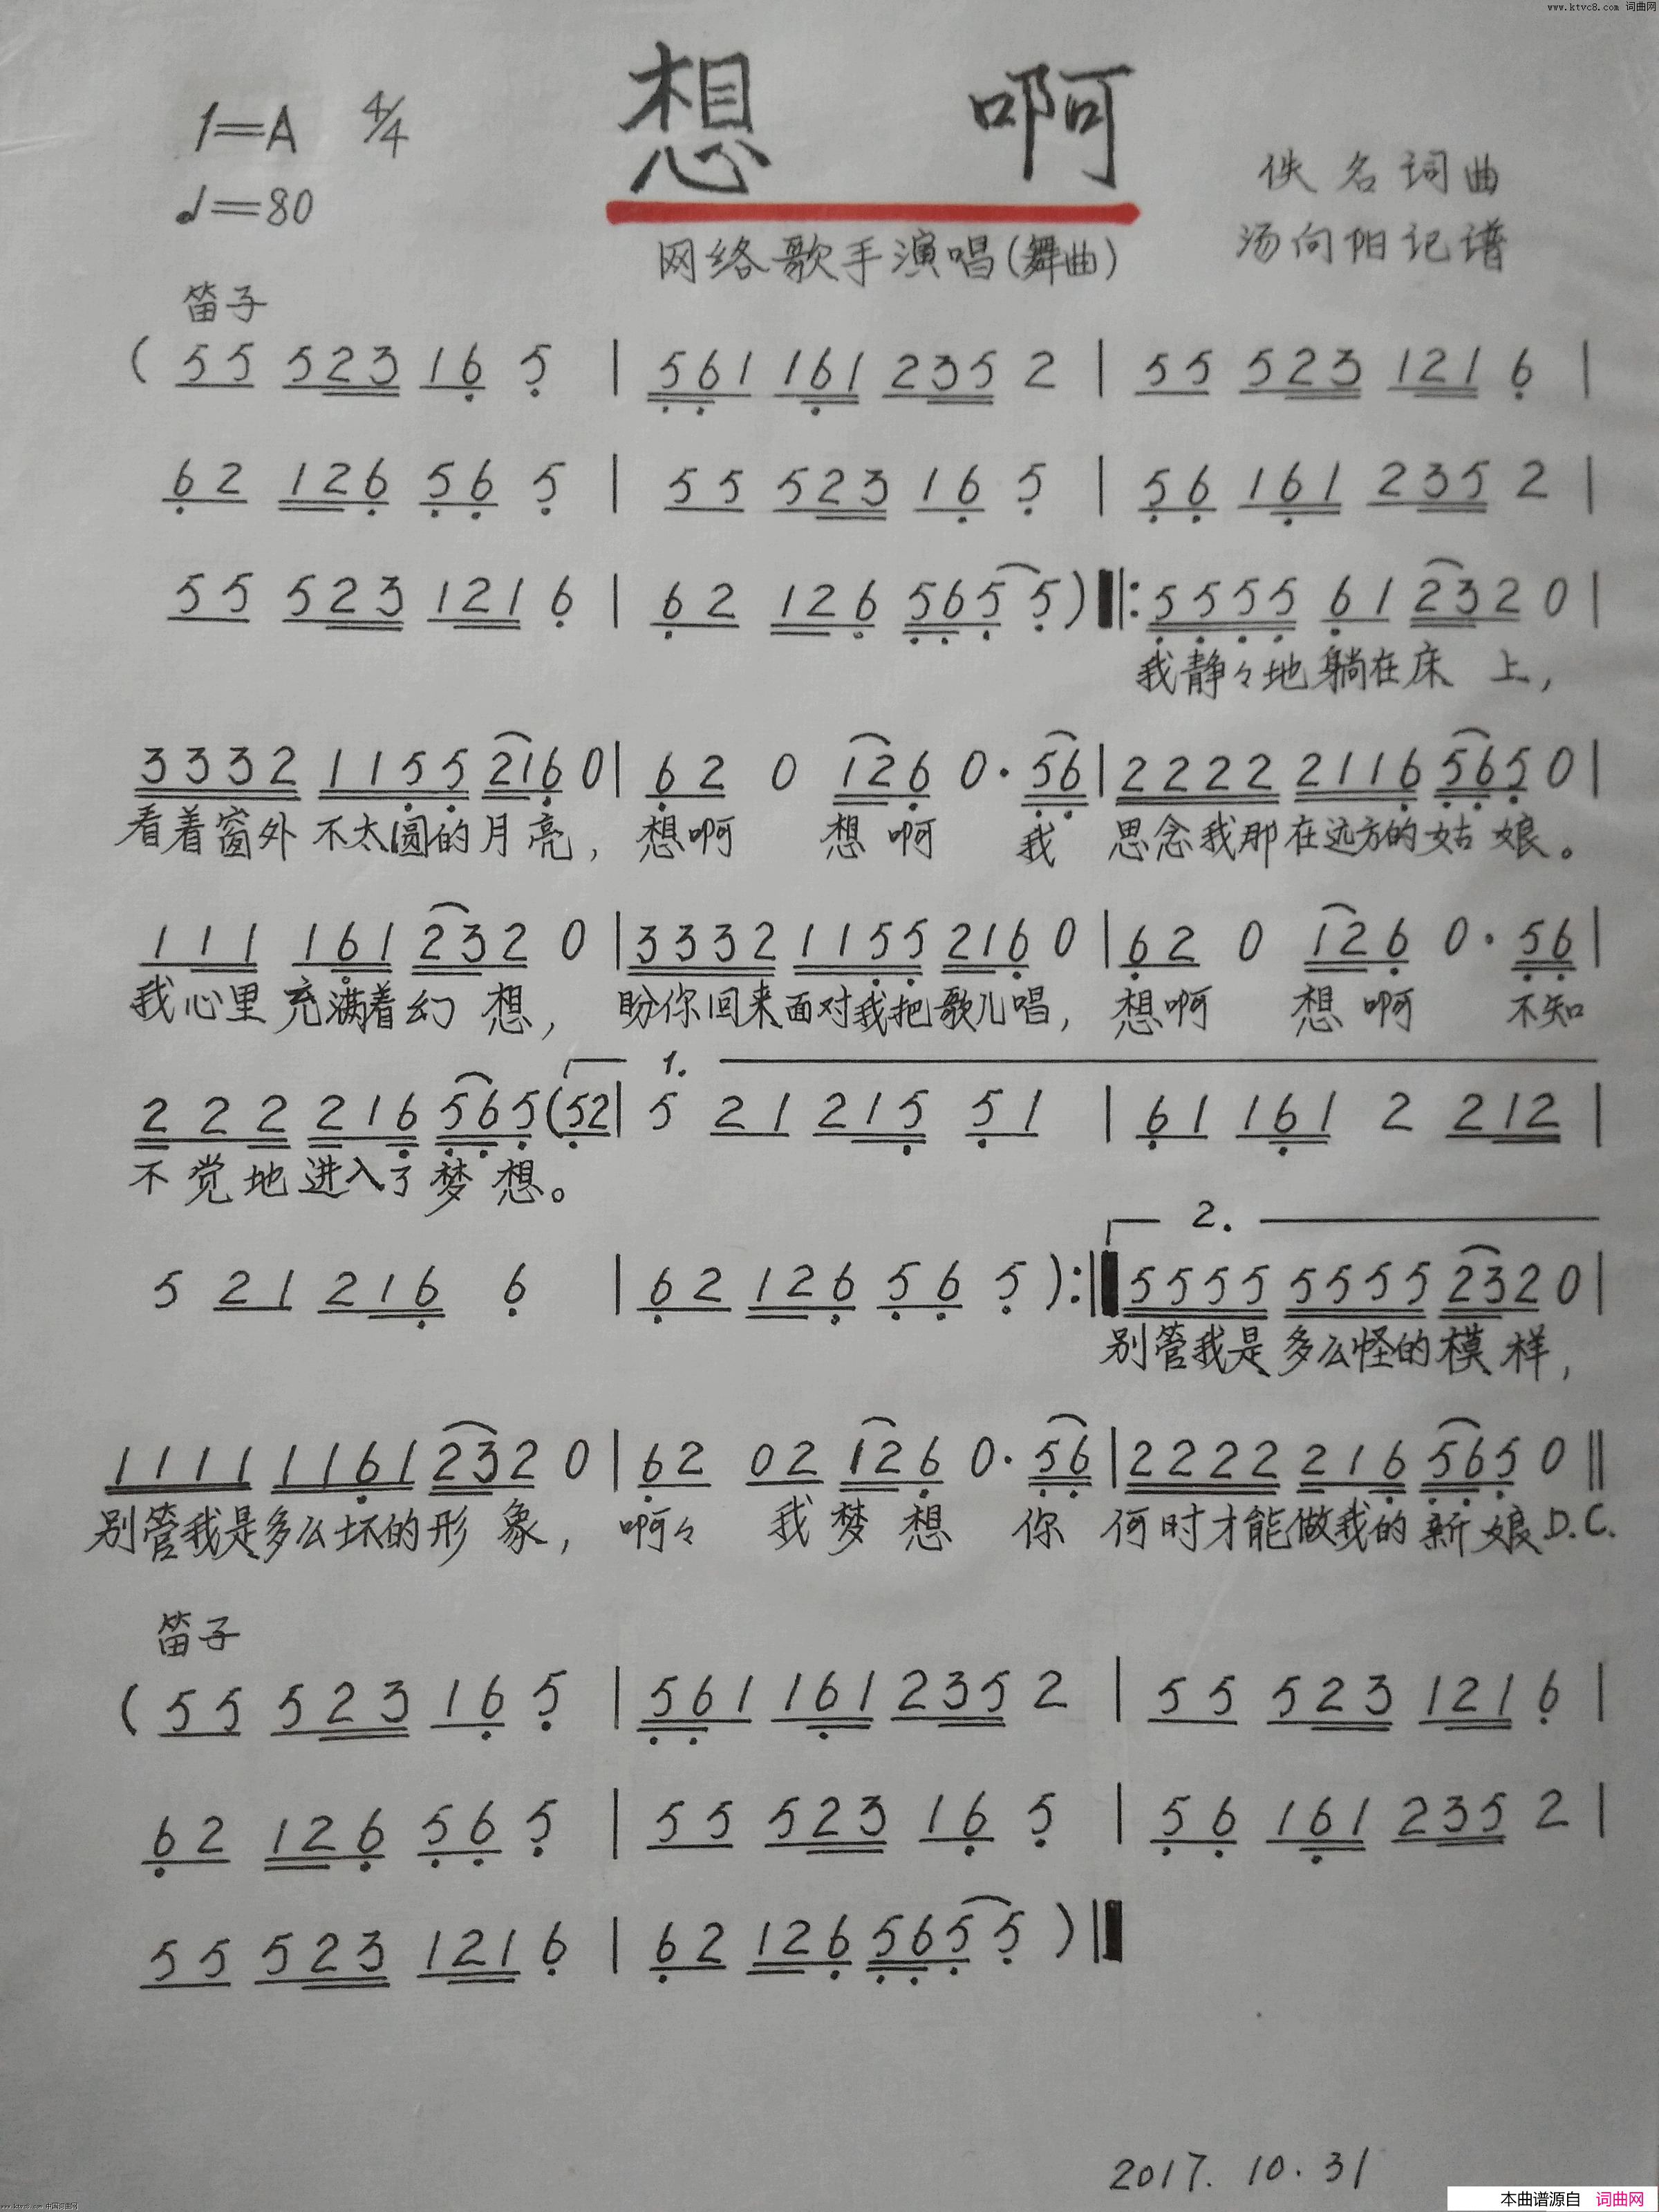 www.ktvc8.com 词曲网
1=A 4/4 想 啊
♩=80 佚名词曲
网络歌手演唱(舞曲) 汤向阳记谱
笛子
( 5 5 5 2 3 1 6 5 | 5 6 1 1 6 1 2 3 5 2 | 5 5 5 2 3 1 2 1 6 |
6 2 1 2 6 5 6 5 | 5 5 5 2 3 1 6 5 | 5 6 1 6 1 2 3 5 2 |
5 5 5 2 3 1 2 1 6 | 6 2 1 2 6 5 6 5 5 ) |: 5 5 5 5 6 1 2 3 2 0 |
我静々地躺在床 上,
3 3 3 2 1 1 5 5 2 1 6 0 | 6 2 0 1 2 6 0 · 5 6 | 2 2 2 2 2 1 1 6 5 6 5 0 |
看着窗外不太圆的月亮, 想啊 想啊 我 思念我那在远方的姑娘。
1 1 1 1 6 1 2 3 2 0 | 3 3 3 2 1 1 5 5 2 1 6 0 | 6 2 0 1 2 6 0 · 5 6 |
我心里充满着幻 想, 盼你回来面对我把歌儿唱, 想啊 想啊 不知
1.
2 2 2 2 1 6 5 6 5 ( 5 2 | 5 2 1 2 1 5 5 1 | 6 1 1 6 1 2 2 1 2 |
不觉地进入了梦想。
2.
5 2 1 2 1 6 6 | 6 2 1 2 6 5 6 5 ) :| 5 5 5 5 5 5 5 5 2 3 2 0 |
别管我是多么怪的模样,
1 1 1 1 1 1 6 1 2 3 2 0 | 6 2 0 2 1 2 6 0 · 5 6 | 2 2 2 2 2 1 6 5 6 5 0 ||
别管我是多么坏的形 象, 啊々 我梦想 你 何时才能做我的新娘 D.C.
笛子
( 5 5 5 2 3 1 6 5 | 5 6 1 1 6 1 2 3 5 2 | 5 5 5 2 3 1 2 1 6 |
6 2 1 2 6 5 6 5 | 5 5 5 2 3 1 6 5 | 5 6 1 6 1 2 3 5 2 |
5 5 5 2 3 1 2 1 6 | 6 2 1 2 6 5 6 5 5 ) ||
2017. 10. 31
本曲谱源自 词曲网